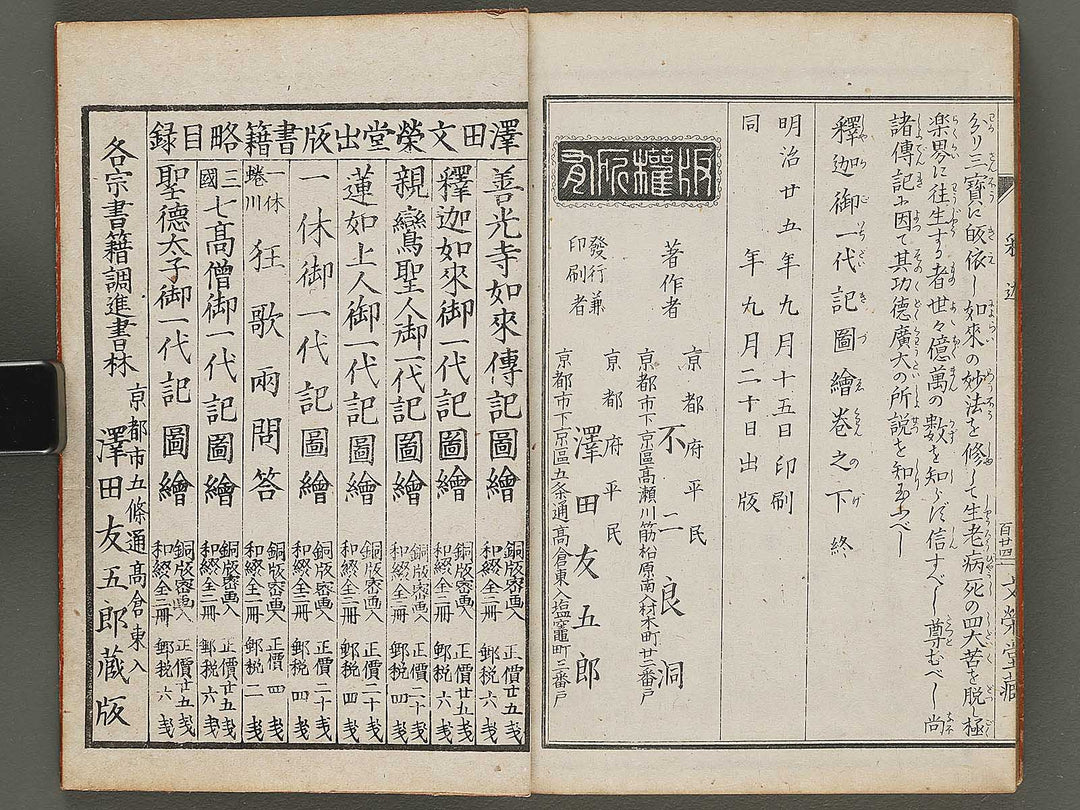 釋迦
百廿四
文榮堂藏
り三寶に皈依し如來の妙法を修して生老病死の四大苦を脱し極
楽界に往生する者世々億萬の数を知らず信ずべし尊むべし尚
諸傳記に因て其功德廣大の所説を知るべし
釋迦御一代記圖繪卷之下終
明治廿五年九月十五日印刷
同年九月二十日出版
版權所有
京都府平民
著作者 不二良洞
京都市下京區高瀬川筋松原南入材木町廿二番戸
京都府平民
發行兼印刷者 澤田友五郎
京都市下京區五条通高倉東入塩竈町三番戸
澤田文榮堂出版書籍略目録
善光寺如來傳記圖繪 銅版密画入和綴全三冊 正價廿五戋郵税六戋
釋迦如來御一代記圖繪 銅版密画入和綴全三冊 正價廿五戋郵税六戋
親鸞聖人御一代記圖繪 銅版密画入和綴全二冊 正價二十戋郵税四戋
蓮如上人御一代記圖繪 銅版密画入和綴全二冊 正價二十戋郵税四戋
一休御一代記圖繪 銅版密画入和綴全二冊 正價二十戋郵税四戋
一休蜷川狂歌両問答 銅版密画入和綴全一冊 正價四戋郵税二戋
三國七高僧御一代記圖繪 銅版密画入和綴全三冊 正價廿五戋郵税六戋
聖德太子御一代記圖繪 銅版密画入和綴全三冊 正價廿五戋郵税六戋
各宗書籍調進書林
京都市五條通高倉東入
澤田友五郎蔵版